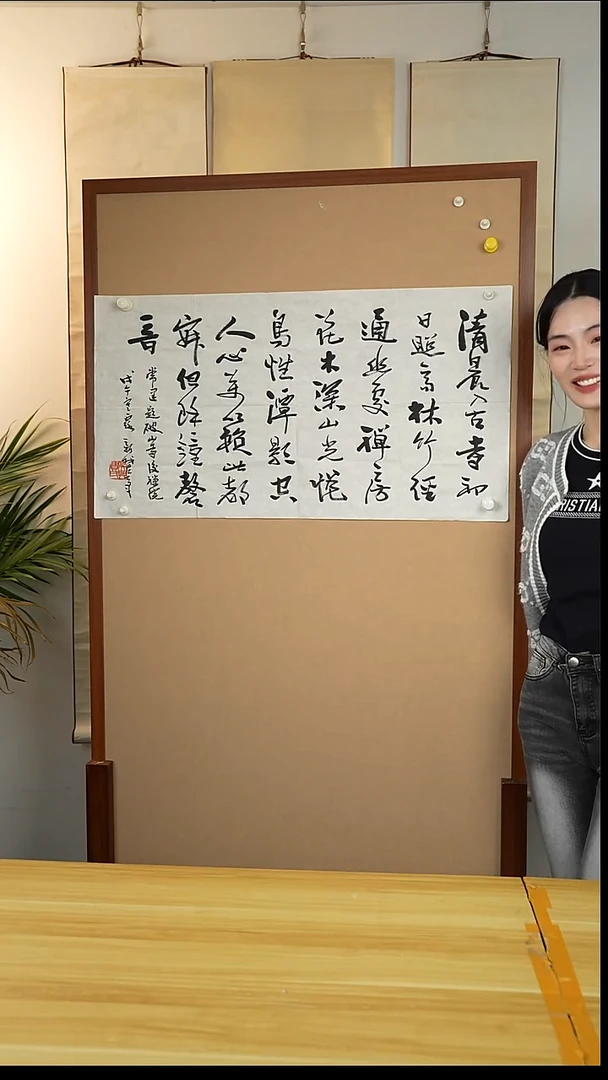 清晨入古寺初
日照高林竹径
通幽处禅房
花木深山光悦
鸟性潭影空
人心万籁此都
寂但余钟磬
音
常建题破山寺后禅院
RISTIA